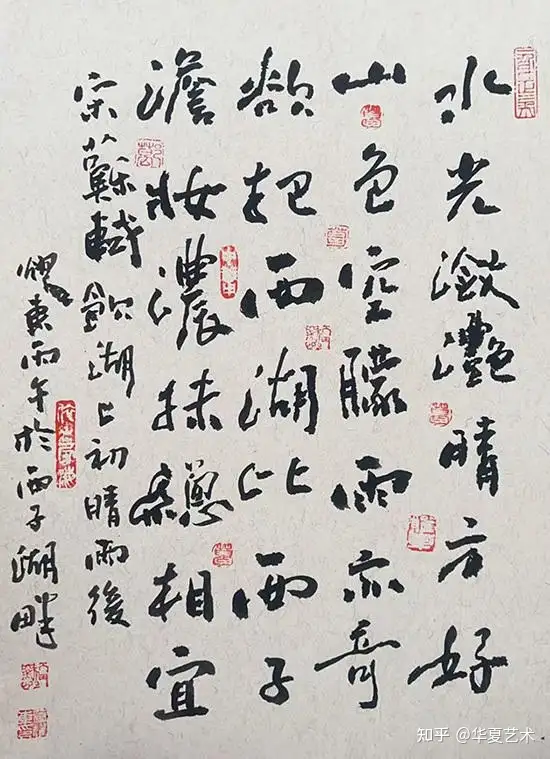 水光瀲灧晴方好
山色空朦雨亦奇
欲把西湖比西子
澹妝濃抹總相宜
宋蘇軾飲湖上初晴雨後
東丙午於西子湖畔
知乎 @华夏艺术